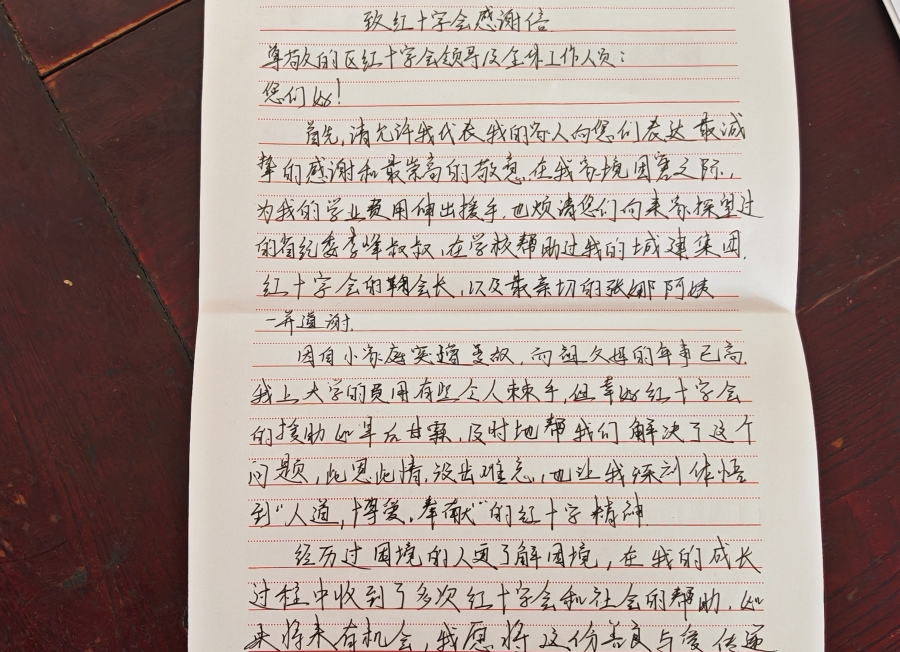 致红十字会感谢信
尊敬的区红十字会领导及全体工作人员：
您们好！
首先，请允许我代表我的家人向您们表达最诚
挚的感谢和最崇高的敬意。在我家境困窘之际，
为我的学业费用伸出援手，也烦请您们向来家探望过
的省纪委李峰叔叔，在学校帮助过我的城建集团，
红十字会的鞠会长，以及最亲切的张娜阿姨
一并道谢。
因自小家庭突遭变故，而祖父母的年事已高，
我上大学的费用有些令人棘手，但幸好红十字会
的援助如旱后甘霖，及时地帮我们解决了这个
问题，此恩此情，没齿难忘，也让我深刻体悟
到“人道，博爱，奉献”的红十字精神。
经历过困境的人更了解困境，在我的成长
过程中收到了多次红十字会和社会的帮助，如
来将来有机会，我愿将这份善良与爱传递